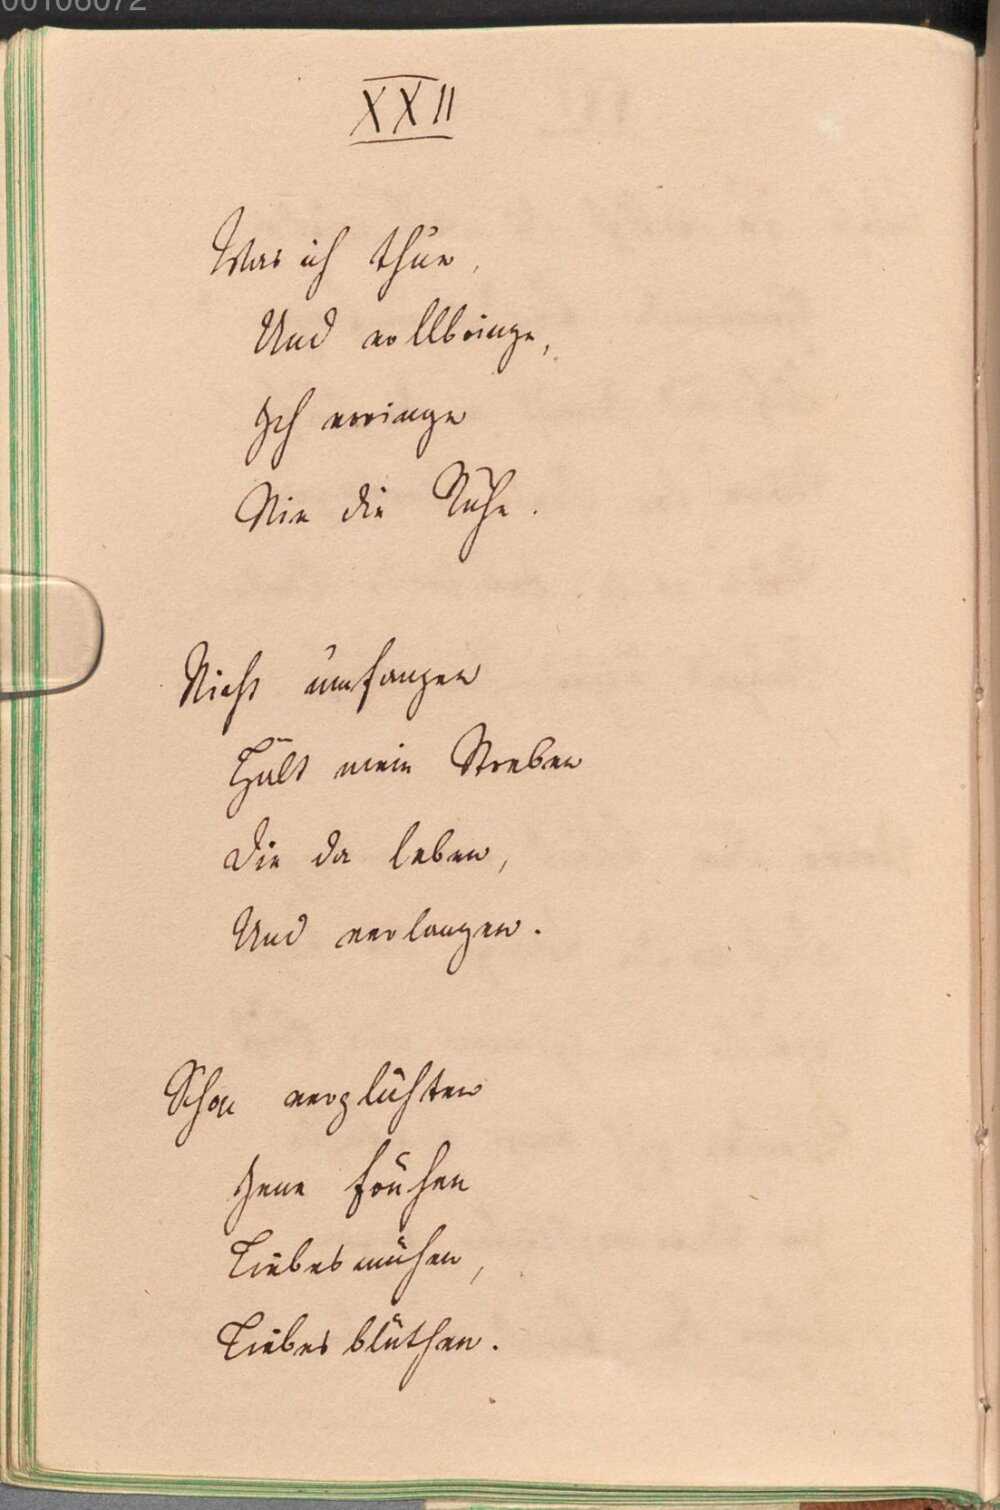 00106072
XXII
Was ich thue,
Und vollbringe,
Ich erringe
Nie die Ruhe.
Nicht umfangen
Hält mein Streben
Die da leben,
Und verlangen.
Schon verglühten
Jene frühen
Liebesmühen,
Liebesblüthen.